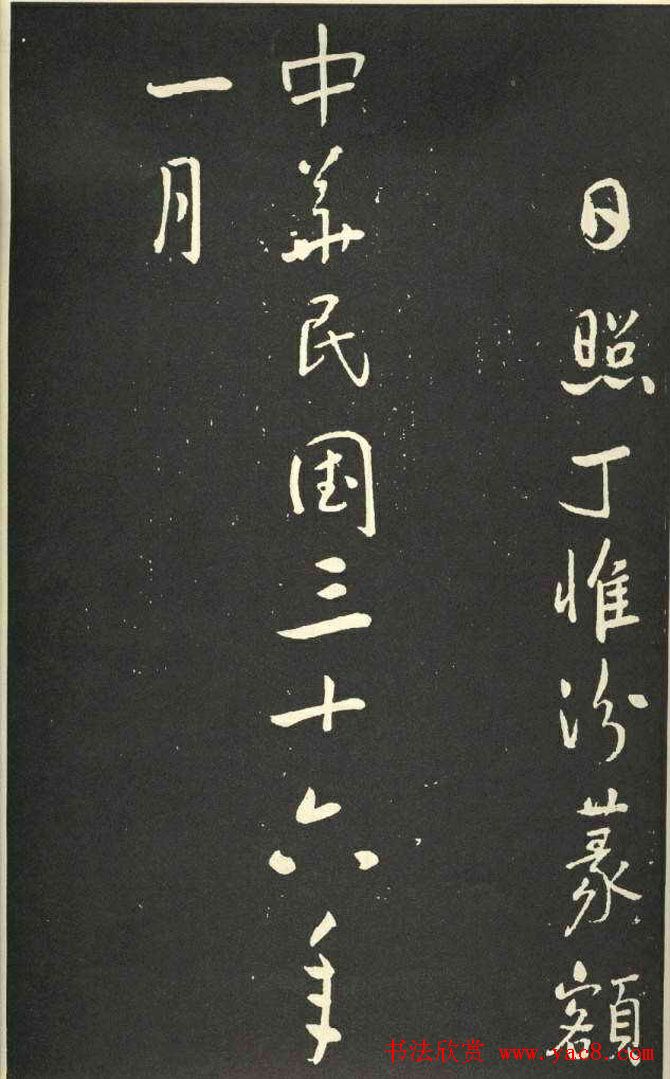 日照丁惟汾篆額
中華民国三十六年
一月
书法欣赏 www.yac8.com